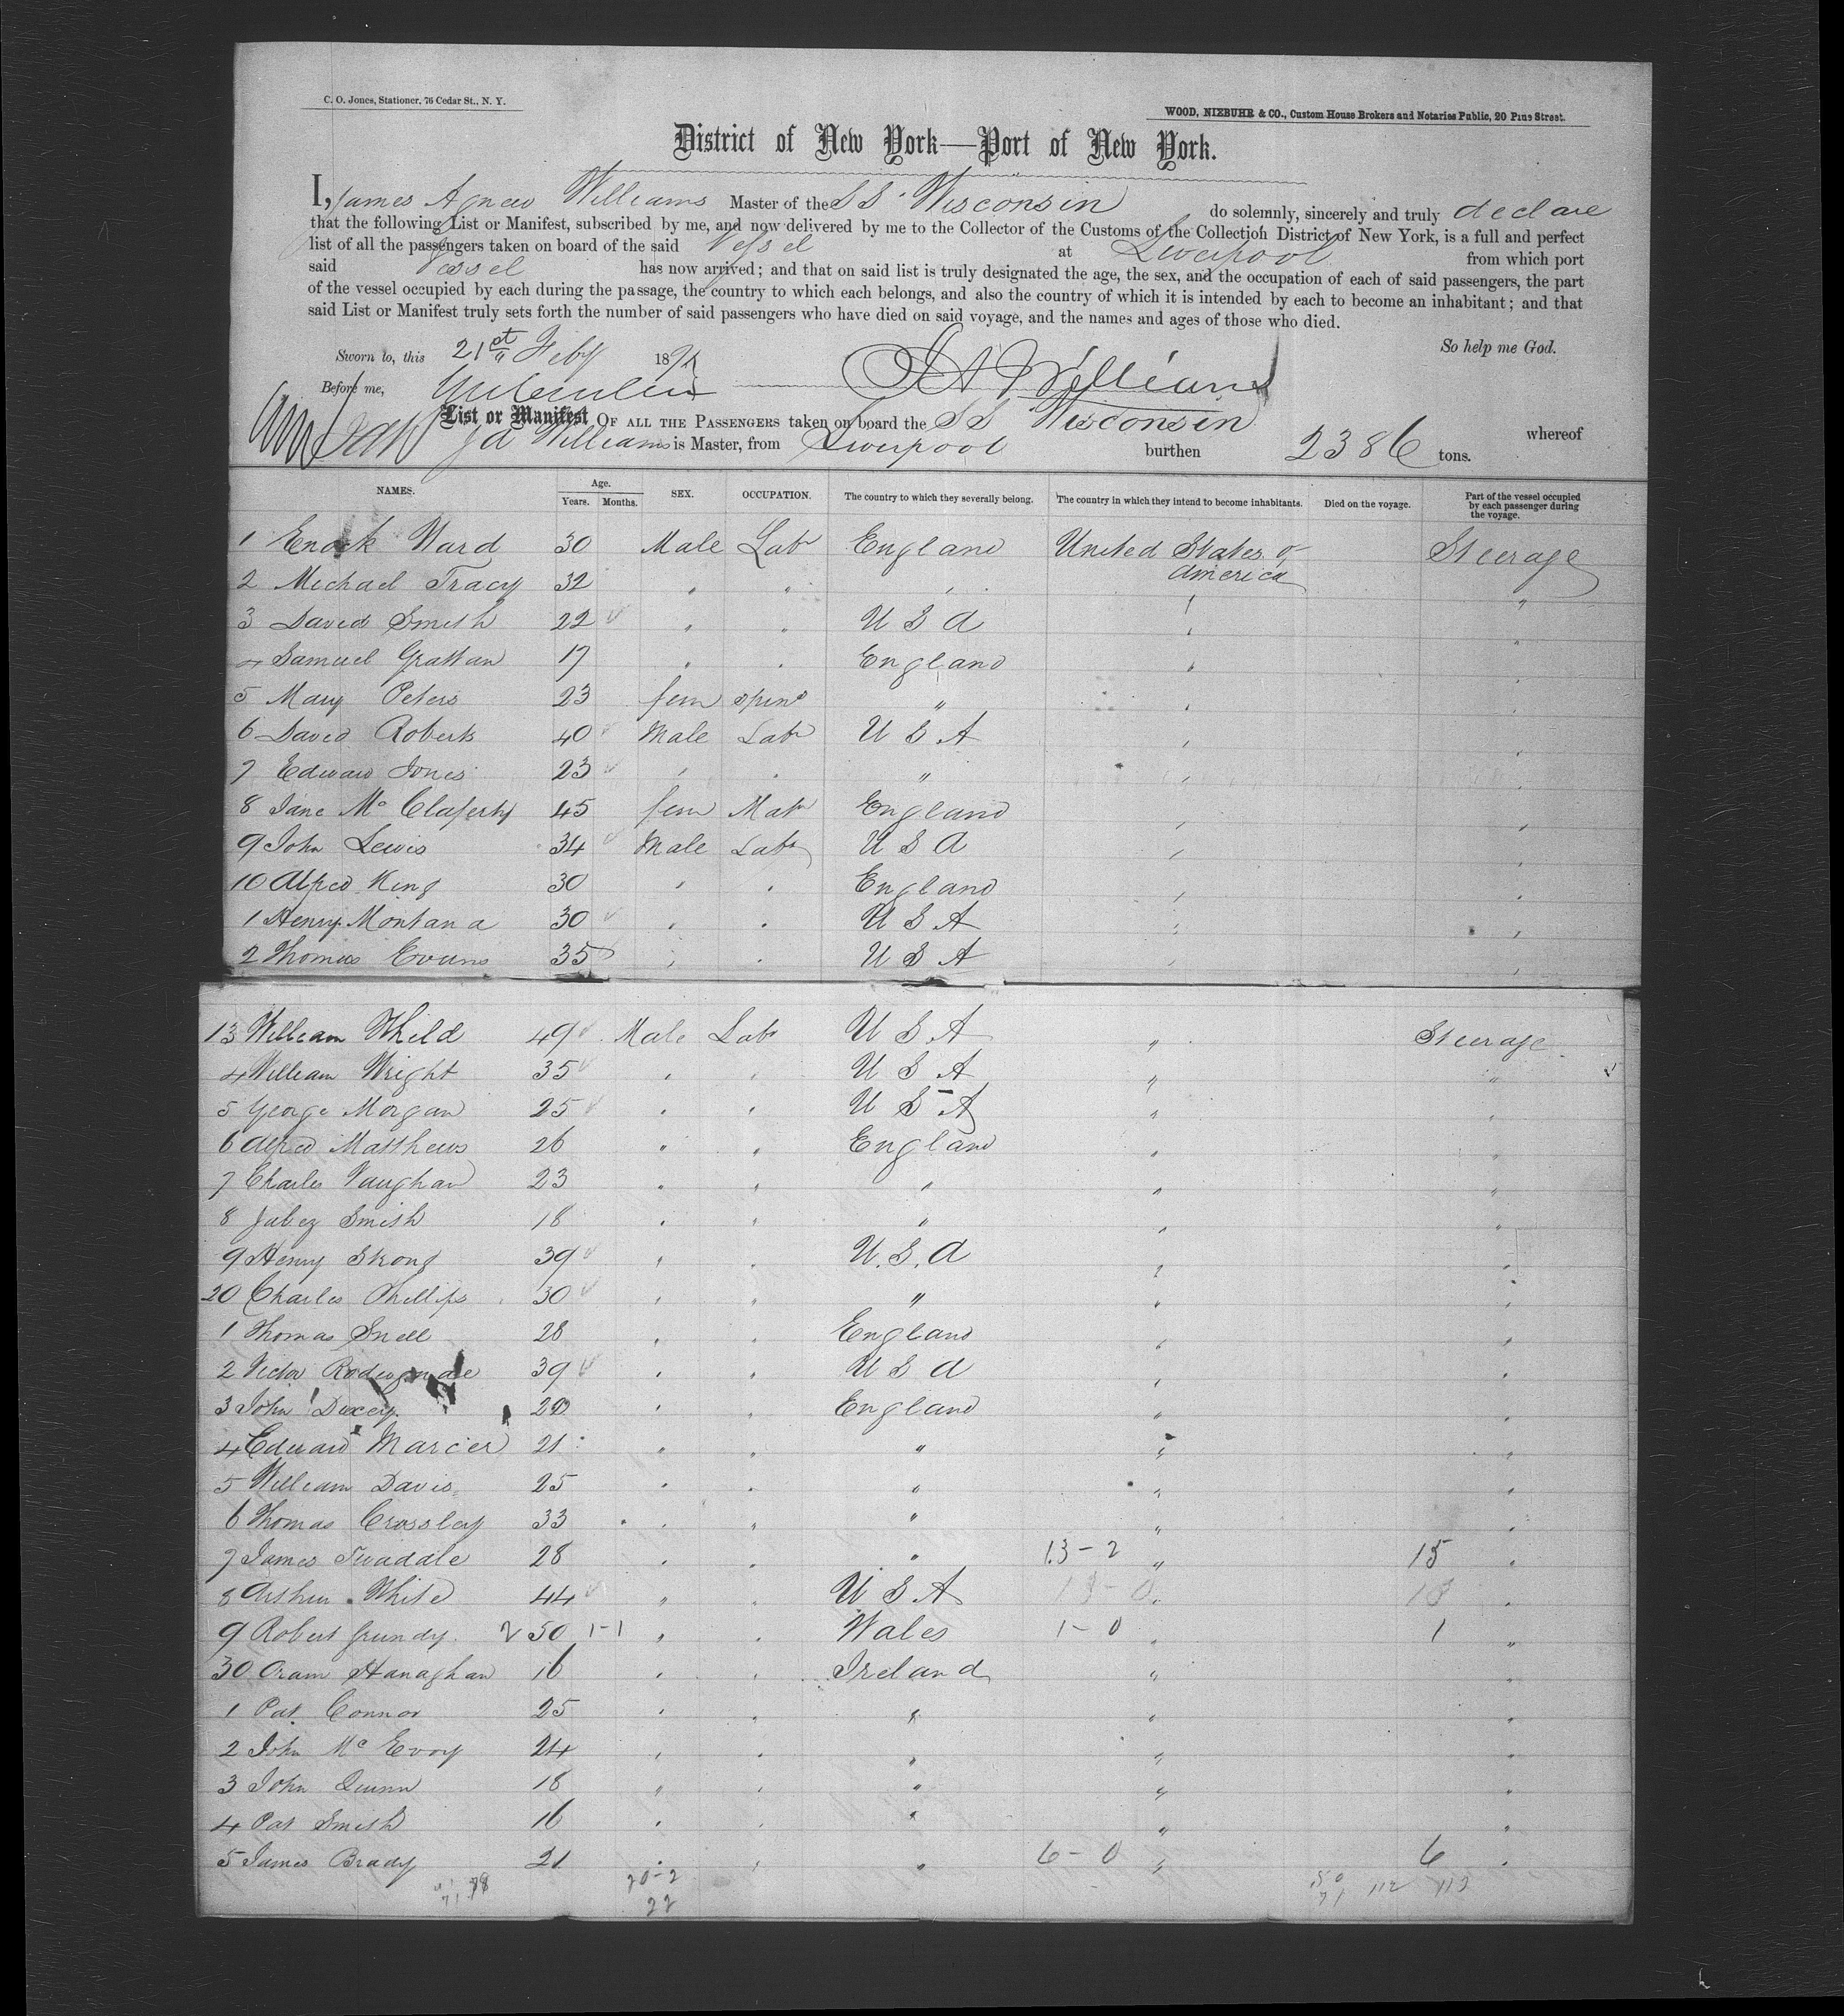 C. O. Jones, Stationer, 76 Cedar St., N. Y.
WOOD, NIEBUHR & CO., Custom House Brokers and Notaries Public, 20 Pine Street.
District of New York—Port of New York.
I, James Agnew Williams Master of the SS Wisconsin do solemnly, sincerely and truly declare
that the following List or Manifest, subscribed by me, and now delivered by me to the Collector of the Customs of the Collection District of New York, is a full and perfect
list of all the passengers taken on board of the said Vessel at Liverpool from which port
said Vessel has now arrived; and that on said list is truly designated the age, the sex, and the occupation of each of said passengers, the part
of the vessel occupied by each during the passage, the country to which each belongs, and also the country of which it is intended by each to become an inhabitant; and that
said List or Manifest truly sets forth the number of said passengers who have died on said voyage, and the names and ages of those who died.
So help me God.
Sworn to, this 21st Feby 18
J A Williams
Before me,
List or Manifest OF ALL THE PASSENGERS taken on board the SS Wisconsin whereof
J A Williams is Master, from Liverpool burthen 2386 tons.
NAMES. Age. Years. Months. SEX. OCCUPATION. The country to which they severally belong. The country in which they intend to become inhabitants. Died on the voyage. Part of the vessel occupied by each passenger during the voyage.
1 Enock Ward 30 Male Labr England United States of America Steerage
2 Michael Tracy 32 " " " " "
3 David Smith 22 " " U S A " "
4 Samuel Grattan 17 " " England " "
5 Mary Peters 23 fem spins " " "
6 David Roberts 40 Male Labr U S A " "
7 Edward Jones 23 " " " " "
8 Jane Mc Claferty 45 fem Matn England " "
9 John Lewis 34 Male Labr U S A " "
10 Alfred King 30 " " England " "
1 Henry Montana 30 " " U S A " "
2 Thomas Evans 35 " " U S A " "
13 William Whild 49 Male Labr U S A " Steerage
4 William Wright 35 " " U S A " "
5 George Morgan 25 " " U S A " "
6 Alfred Matthews 26 " " England " "
7 Charles Vaughan 23 " " " " "
8 Jabez Smith 18 " " " " "
9 Henry Strong 39 " " U.S.A " "
20 Charles Phillips 30 " " " " "
1 Thomas Snell 28 " " England " "
2 Victor 39 " " U S A " "
3 John Ducey 20 " " England " "
4 Edward Marcer 21 " " " " "
5 William Davis 25 " " " " "
6 Thomas Crossley 33 " " " " "
7 James Twaddle 28 " " " 13-2 " 15 "
8 Arthur White 44 " " U S A 13-0 " 13 "
9 Robert Grundy 50 1-1 " " Wales 1-0 " 1 "
30 Oram Hanaghan 16 " " Ireland " "
1 Pat Connor 25 " " " " "
2 John Mc Evoy 24 " " " " "
3 John Quinn 18 " " " " "
4 Pat Smith 16 " " " " "
5 James Brady 21 " " " 6-0 " 6 "
20-2 112 113
22